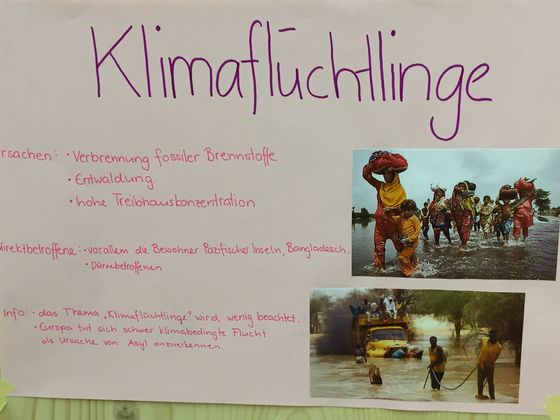 Klimaflüchtlinge
rsachen: • Verbrennung fossiler Brennstoffe
• Entwaldung
• hohe Treibhauskonzentration
direktbetroffene: • vorallem die Bewohner Pazifisches Inseln, Bangladesch.
• Dürrebetroffenen
Info: • das Thema „Klimaflüchtlinge" wird wenig beachtet.
• Europa tut sich schwer klimabedingte Flucht
als Ursache von Asyl anzuerkennen.